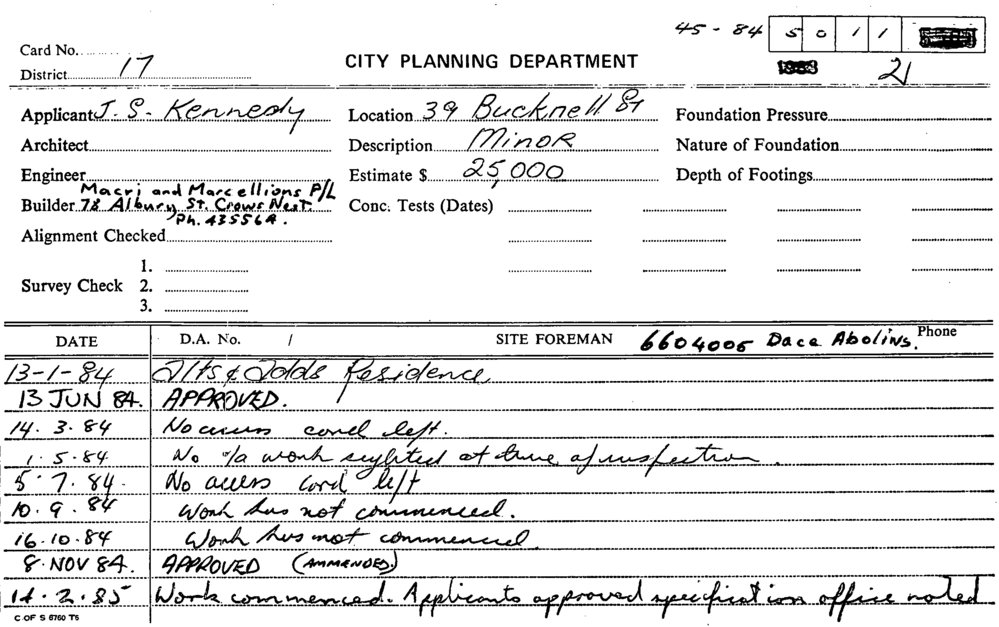 45-84 5011
Card No.
District 17
CITY PLANNING DEPARTMENT
21
Applicant J. S. Kennedy
Location 39 Bucknell St
Foundation Pressure
Architect
Description MINOR
Nature of Foundation
Engineer
Estimate $ 25,000
Depth of Footings
Macri and Marcellions P/L
Builder 78 Albury St. Crows Nest.
Ph. 435564.
Conc. Tests (Dates)
Alignment Checked
1.
Survey Check 2.
3.
DATE D.A. No. / SITE FOREMAN 6604005 Dace Abolins. Phone
13-1-84 Alts & Adds Residence
13 JUN 84. APPROVED.
14. 3. 84 No access card left.
1. 5. 84 No work sighted at time of inspection.
5. 7. 84. No access card left
10. 9. 84 Work has not commenced.
16. 10. 84 Work has not commenced
8. NOV 84. APPROVED (AMMENDED.)
14. 2. 85 Work commenced. Applicants approved specification office noted
C OF S 6760 T6